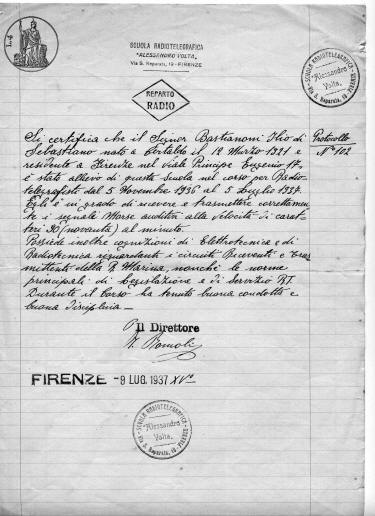 L. 4
SCUOLA RADIOTELEGRAFICA
"ALESSANDRO VOLTA"
Via S. Reparata, 19 - FIRENZE
SCUOLA RADIOTELEGRAFICA
"Alessandro
Volta"
Via S. Reparata, 19
REPARTO
RADIO
Si certifica che il Signor Bastianoni Ilio di
Sebastiano nato a il 12 Marzo 1921 e
residente a Firenze nel viale Principe Eugenio 17,
è stato allievo di questa Scuola nel corso per Radio-
telegrafisti dal 5 Novembre 1936 al 5 Luglio 1937.
Egli è in grado di ricevere e trasmettere correttamen-
te i segnali Morse auditivi alla velocità di carat-
teri 90 (novanta) al minuto.
Possiede inoltre cognizioni di Elettrotecnica e di
Radiotecnica riguardanti i circuiti Riceventi e Tras
mittenti della R. Marina, nonchè le norme
principali di Legislazione e di Servizio RT.
Durante il Corso ha tenuto buona condotta e
buona disciplina.
Protocollo
N° 102
Il Direttore
FIRENZE - 9 LUG. 1937 XV°
SCUOLA RADIOTELEGRAFICA
"Alessandro
Volta"
Via S. Reparata, 19